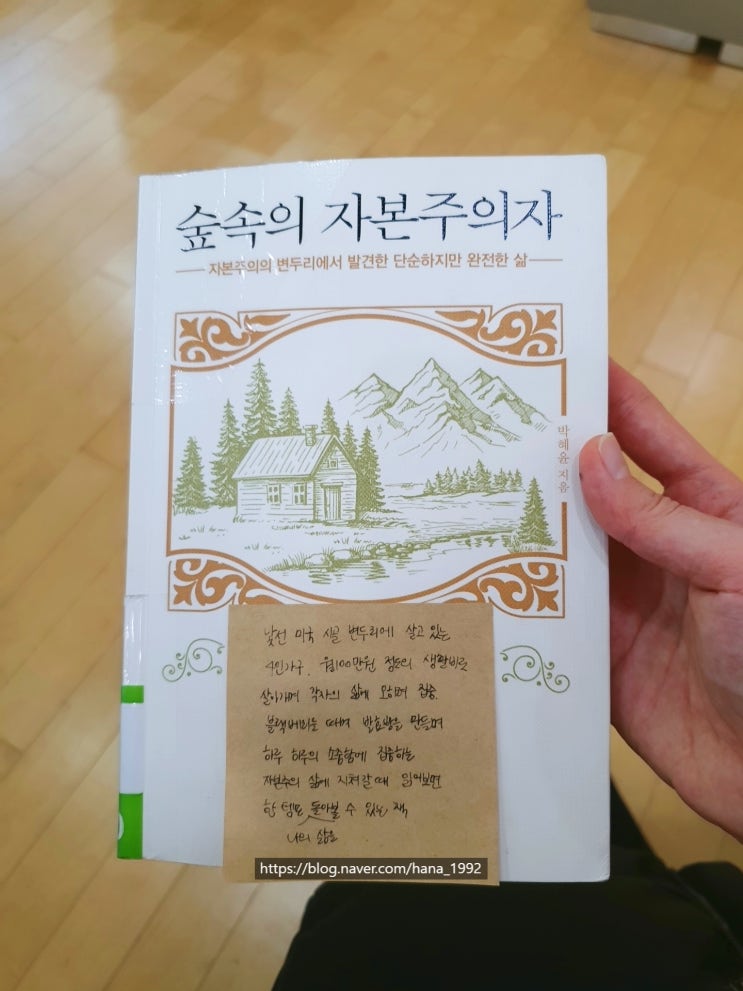 숲속의 자본주의자
자본주의의 변두리에서 발견한 단순하지만 완전한 삶
박혜윤 지음
낯선 미국 시골 변두리에 살고 있는
4인가구. 월100만원 정도의 생활비로
살아가며 각자의 삶에 오히려 집중.
블랙베리를 따며 발효빵을 만들며
하루 하루의 소중함에 집중하는
자본주의 삶에 지쳐갈 때 읽어보면
한 템포 돌아볼 수 있는 책
나의 삶을
https://blog.naver.com/hana_1992